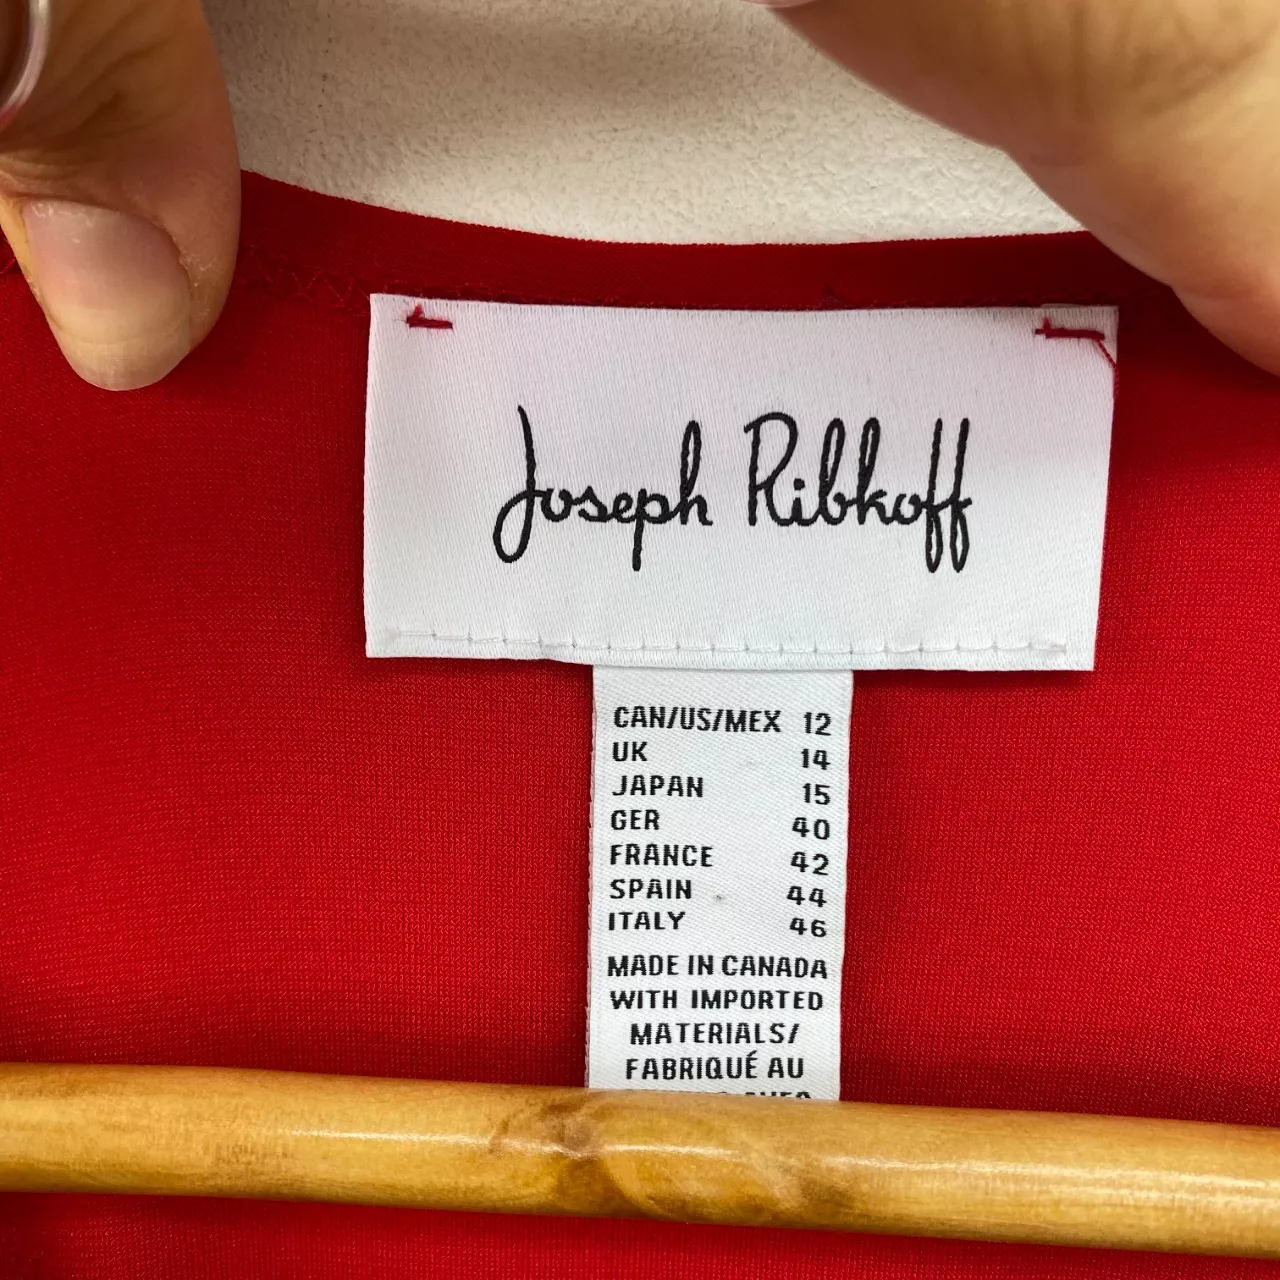 Joseph Ribkoff
CAN/US/MEX 12
UK 14
JAPAN 15
GER 40
FRANCE 42
SPAIN 44
ITALY 46
MADE IN CANADA
WITH IMPORTED
MATERIALS/
FABRIQUÉ AU